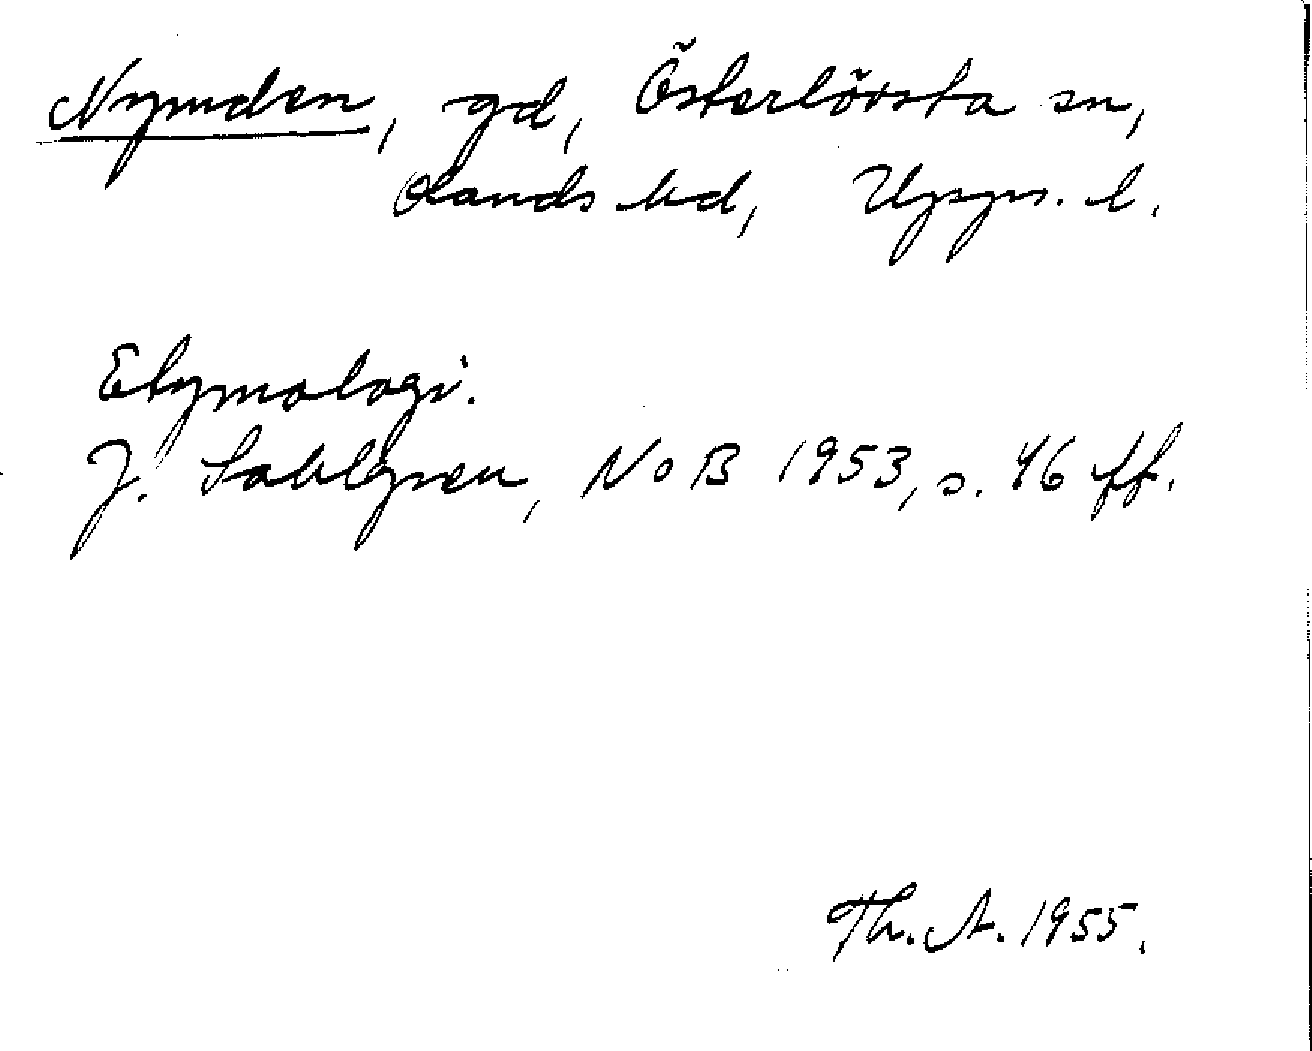 Nymden, gd, Österlövsta sn,
Olands hd, Upps. l.
Etymologi.
J. Sahlgren, NoB 1953, s. 46 ff.
Th. A. 1955.